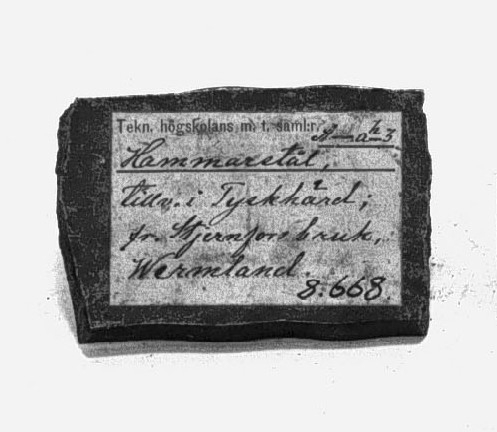 Tekn. högskolans m. t. saml:r.
Hammarstål,
tillv. i Tyskhärd;
fr. Stjernfors bruk,
Wermland.
8:668.